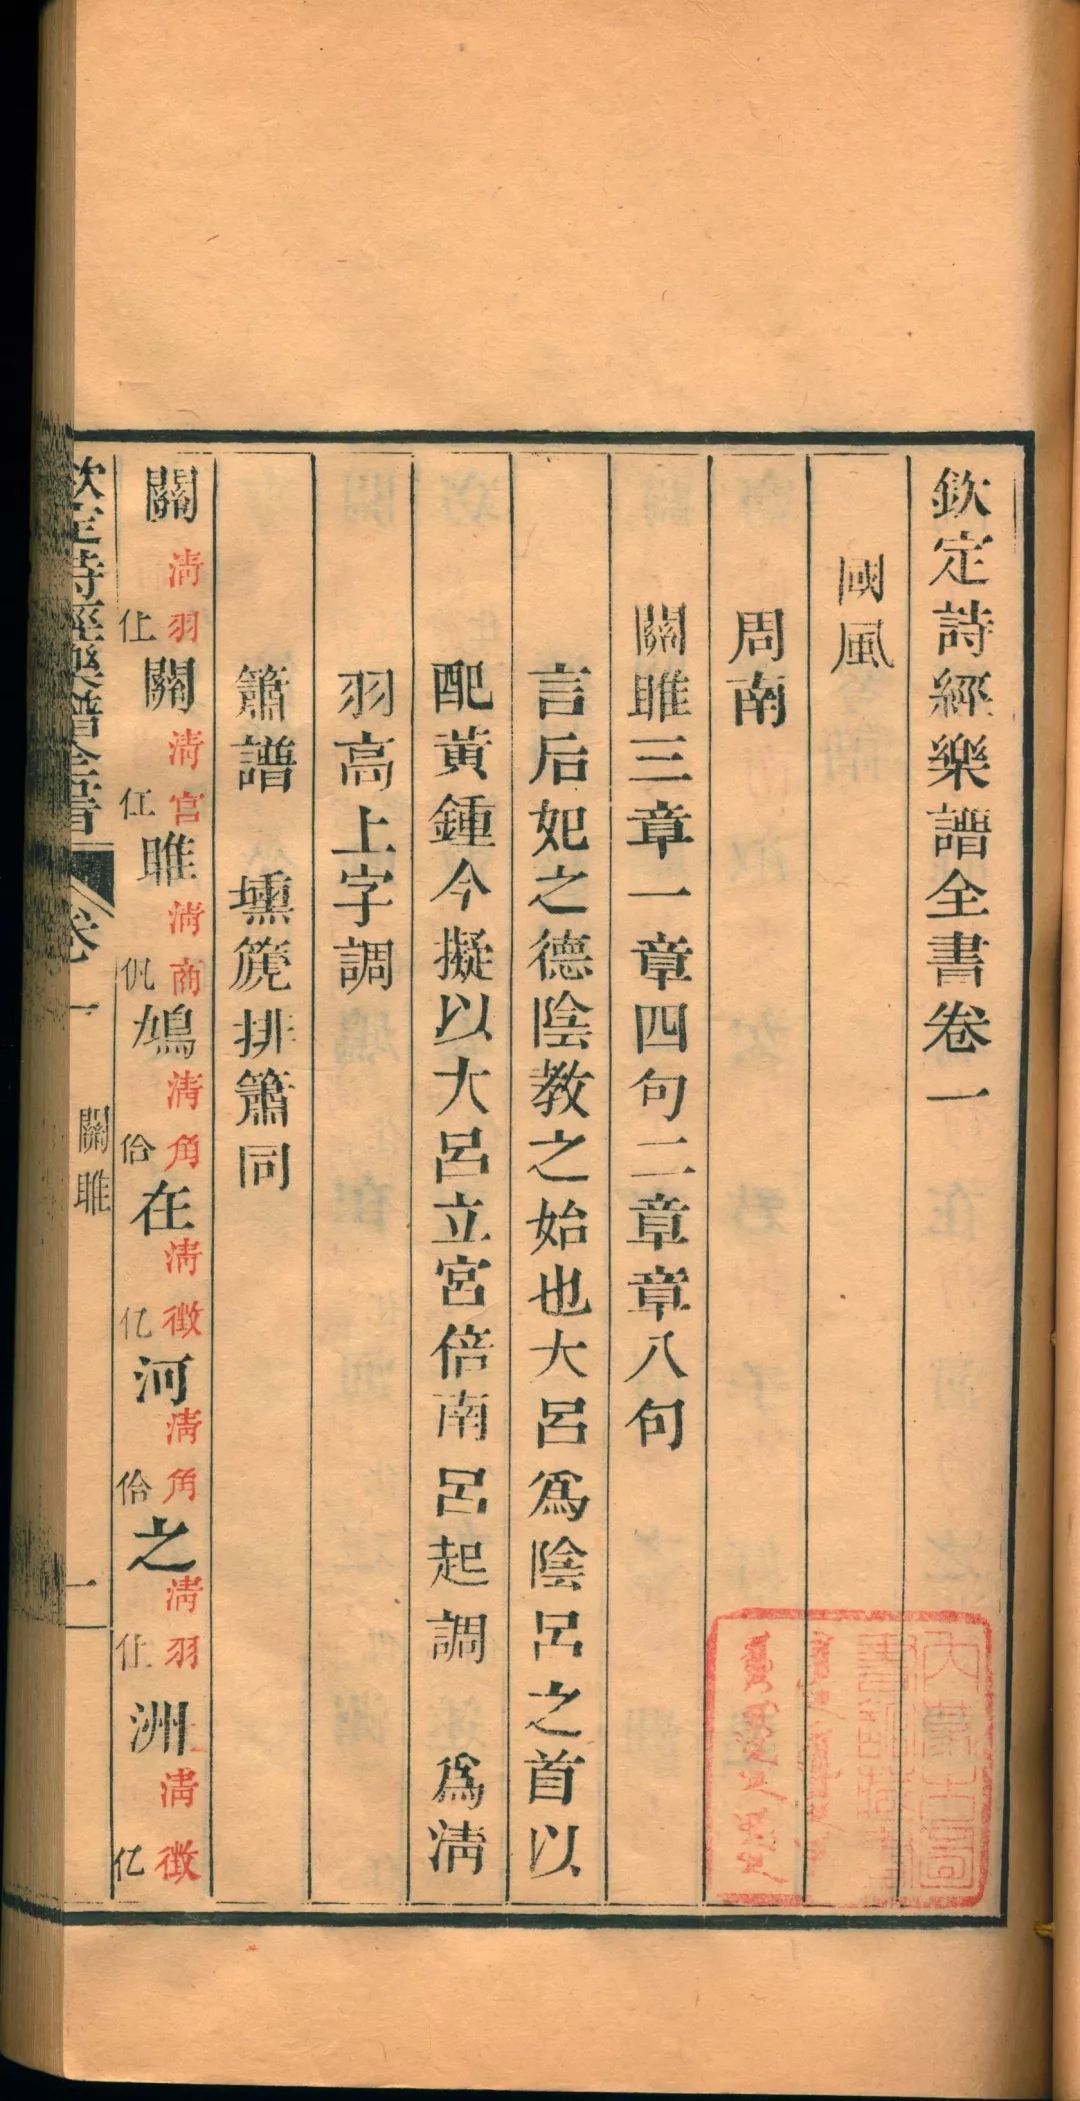 欽定詩經樂譜全書卷一
國風
周南
關雎三章一章四句二章章八句
言后妃之德陰教之始也大呂爲陰呂之首以
配黃鍾今擬以大呂立宮倍南呂起調 爲清
羽高上字調
簫譜 壎篪排簫同
關清羽仩關清宮仜雎清商㐸鳩清角佮在清徵亿河清角佮之清羽仩洲清徵亿
欽定詩經樂譜全書 卷一 關雎 一
內蒙古圖書館藏書